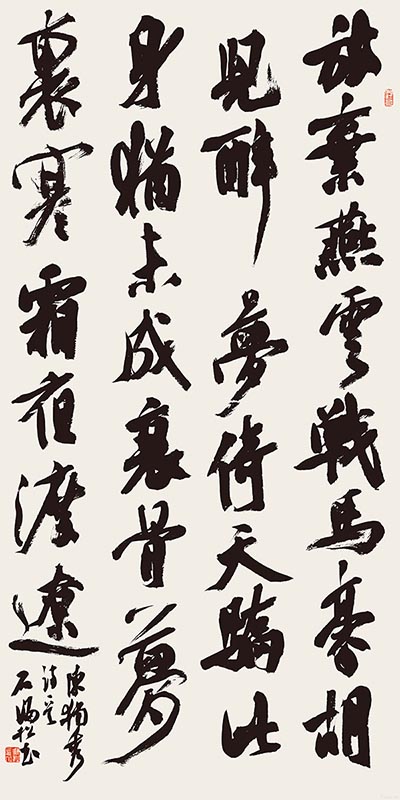 放棄燕雲戰馬豪胡
兒醉夢倚天驕此
身猶未成衰骨夢
裏寒霜夜渡遼
陳獨秀
詩
石